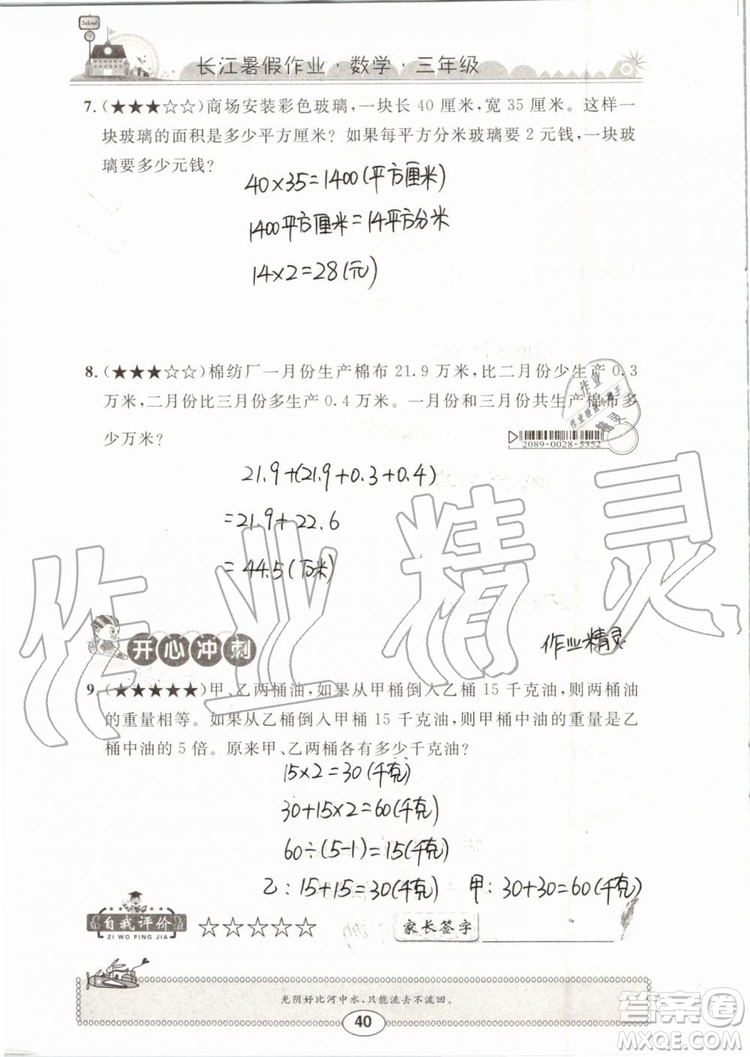 School
长江暑假作业·数学·三年级
7.(★★★☆☆)商场安装彩色玻璃,一块长 40 厘米,宽 35 厘米。这样一
块玻璃的面积是多少平方厘米?如果每平方分米玻璃要 2 元钱,一块玻
璃要多少元钱?
40×35=1400(平方厘米)
1400平方厘米=14平方分米
14×2=28(元)
8.(★★★☆☆)棉纺厂一月份生产棉布 21.9 万米,比二月份少生产 0.3
万米,二月份比三月份多生产 0.4 万米。一月份和三月份共生产棉布多
少万米?
2089-0028-5352
21.9+(21.9+0.3+0.4)
=21.9+22.6
=44.5(万米)
作业精灵
开心冲刺
作业精灵
9.(★★★★★)甲、乙两桶油,如果从甲桶倒入乙桶 15 千克油,两桶油
的重量相等。如果从乙桶倒入甲桶 15 千克油,则甲桶中油的重量是乙
桶中油的 5 倍。原来甲、乙两桶各有多少千克油?
15×2=30(千克)
30+15×2=60(千克)
60÷(5-1)=15(千克)
乙:15+15=30(千克) 甲:30+30=60(千克)
自我评价 ☆☆☆☆☆ 家长签字
ZI WO PING JIA
光阴好比河中水,只能流去不流回。
40
答案圈
MXQE.COM